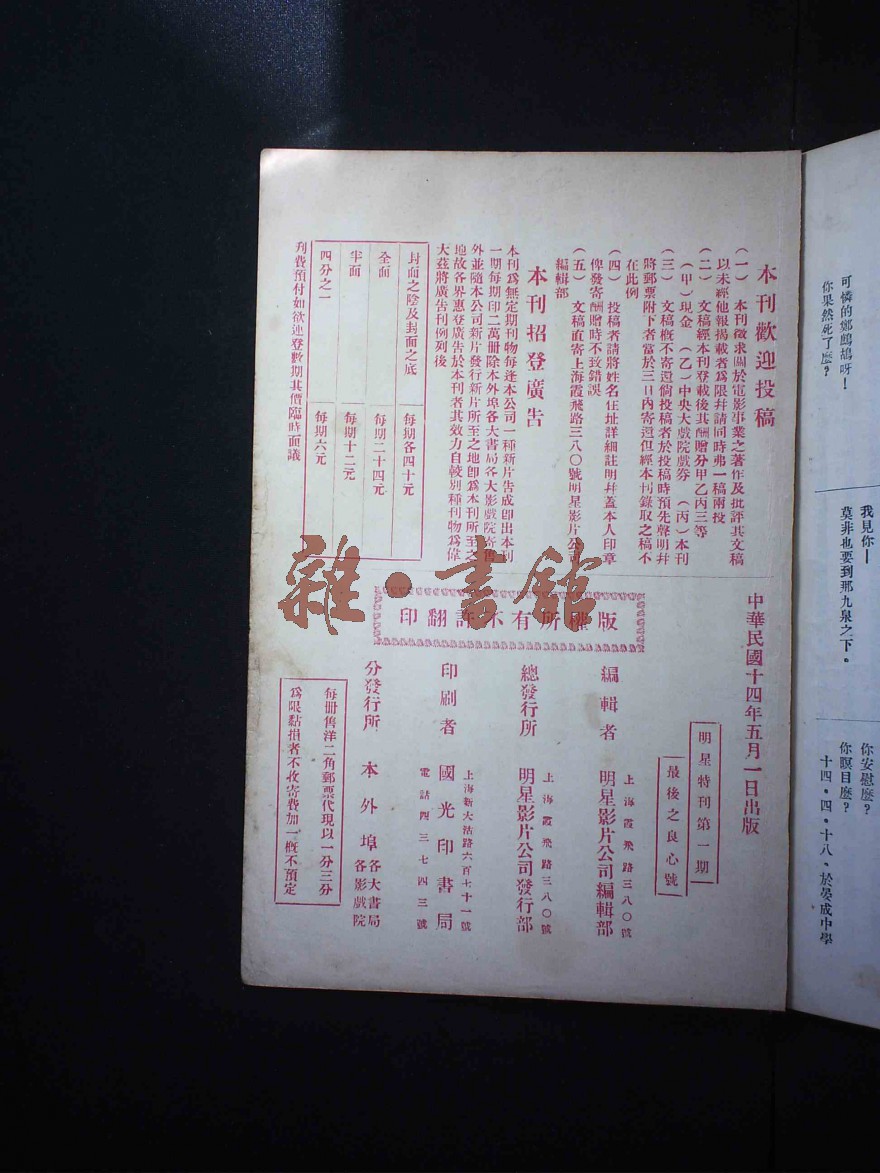 可憐的鄉鷓鴣呀！
你果然死了麽？
我見你—
莫非也要到那九泉之下。
你安慰麽？
你瞑目麽？
十四・四・十八・於晏成中學
本刊歡迎投稿
（一） 本刊徵求關於電影事業之著作及批評其文稿
以未經他報揭載者為限幷請同時弗一稿兩投
（二） 文稿經本刊登載後其酬贈分甲乙丙三等
（甲）現金 （乙）中央大戲院戲券 （丙）本刊
（三） 文稿概不寄還倘投稿者於投稿時預先聲明幷
將郵票附下者當於三日內寄還但經本刊錄取之稿不
在此例
（四） 投稿者請將姓名住址詳細註明幷蓋本人印章
俾發寄酬贈時不致錯誤
（五） 文稿直寄上海霞飛路三八〇號明星影片公司
編輯部
本刊招登廣告
本刊為無定期刊物每逢本公司一種新片告成卽出本刊
一期每期印二萬冊除本外埠各大書局各大影戲院寄售
外並隨本公司新片發行新片所至之地卽為本刊所至之
地故各界惠登廣告於本刊者其效力自較別種刊物為偉
大茲將廣告刊例列後
封面之陰及封面之底 每期各四十元
全面 每期二十四元
半面 每期十二元
四分之一 每期六元
刋費預付如欲連登數期其價臨時面議
中華民國十四年五月一日出版
明星特刊第一期
最後之良心號
版權所有不許翻印
上海霞飛路三八〇號
編輯者 明星影片公司編輯部
上海霞飛路三八〇號
總發行所 明星影片公司發行部
上海新大沽路六百七十一號
印刷者 國光印書局
電話四三七四三號
分發行所 本外埠各大書局
各影戲院
每册售洋二角郵票代現以一分三分
為限黏損者不收寄費加一概不預定
雜・書館